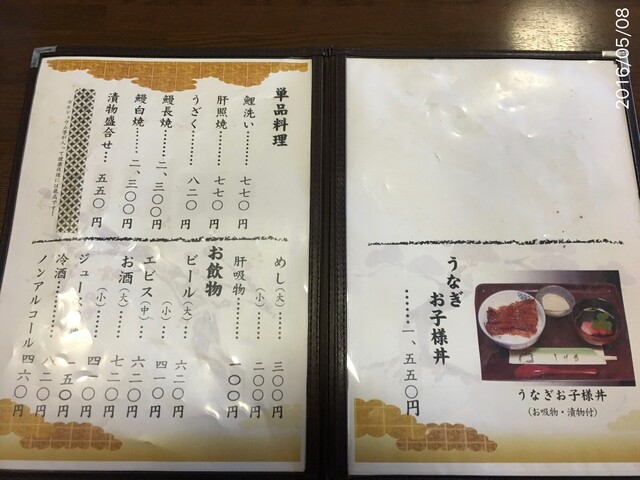 2016/05/08
うなぎ
お子様丼
……一、五五〇円
うなぎお子様丼
(お吸物・漬物付)
単品料理
鯉洗い………七七〇円
肝照焼………七七〇円
うざく………八二〇円
鰻長焼………二、三〇〇円
鰻白焼………二、三〇〇円
漬物盛合せ…五五〇円
めし(大)……三〇〇円
(小)……二〇〇円
肝吸物………一〇〇円
お飲物
ビール(大)……六二〇円
(小)……四一〇円
エビス(中)……六二〇円
お酒(大)……七二〇円
(小)……四一〇円
ジュース
一五〇円
冷酒………八二〇円
ノンアルコール 四六〇円